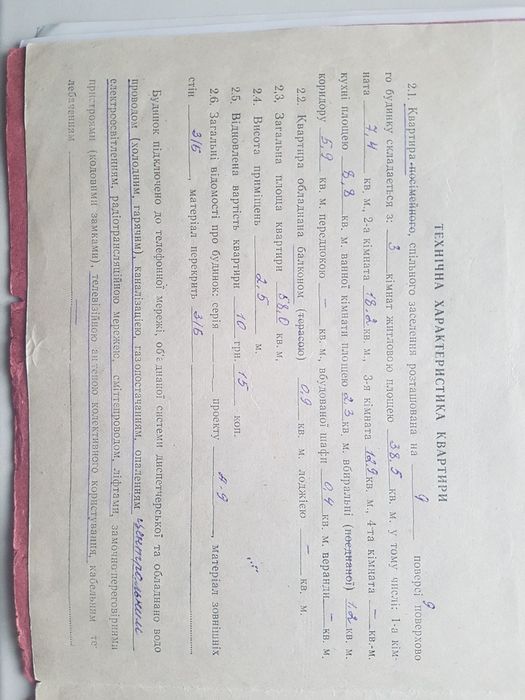 ТЕХНІЧНА ХАРАКТЕРИСТИКА КВАРТИРИ
2.1. Квартира посімейного, спільного заселення розташована на 9 поверсі 9 поверхово
го будинку складається з: 3 кімнат житловою площею 38,5 кв. м. у тому числі: 1-а кім-
ната 7,4 кв м, 2-а кімната 18.2 кв. м., 3-я кімната 12.9 кв. м., 4-та кімната — кв.-м.
кухні площею 8,8 кв. м. ванної кімнати площею 2,3 кв. м. вбиральні (поєднаної) 1.2 кв. м.
коридору 5,9 кв. м. передпокою — кв. м., вбудованої шафи 0,4 кв. м. веранди — кв. м.
2.2. Квартира обладнана балконом (терасою) 0,9 кв. м. лоджією — кв. м.
2.3. Загальна площа квартири 58,0 кв. м.
2.4. Висота приміщень 2,5 м.
2.5. Відновлена вартість квартири 10 грн. 15 коп.
2.6. Загальні відомості про будинок: серія проекту , матеріал зовнішніх
стін З/Б , матеріал перекрить З/Б
Будинок підключено до телефонної мережі, об'єднаної системи диспетчерської та обладнано водо
проводом (холодним, гарячим), каналізацією, газопостачанням, опаленням центральним
електроосвітленням, радіотрансляційною мережею, сміттєпроводом, ліфтами, замочно-переговірнима
пристроями (кодовими замками), телевізійною антеною колективного користування, кабельним те
лебаченням